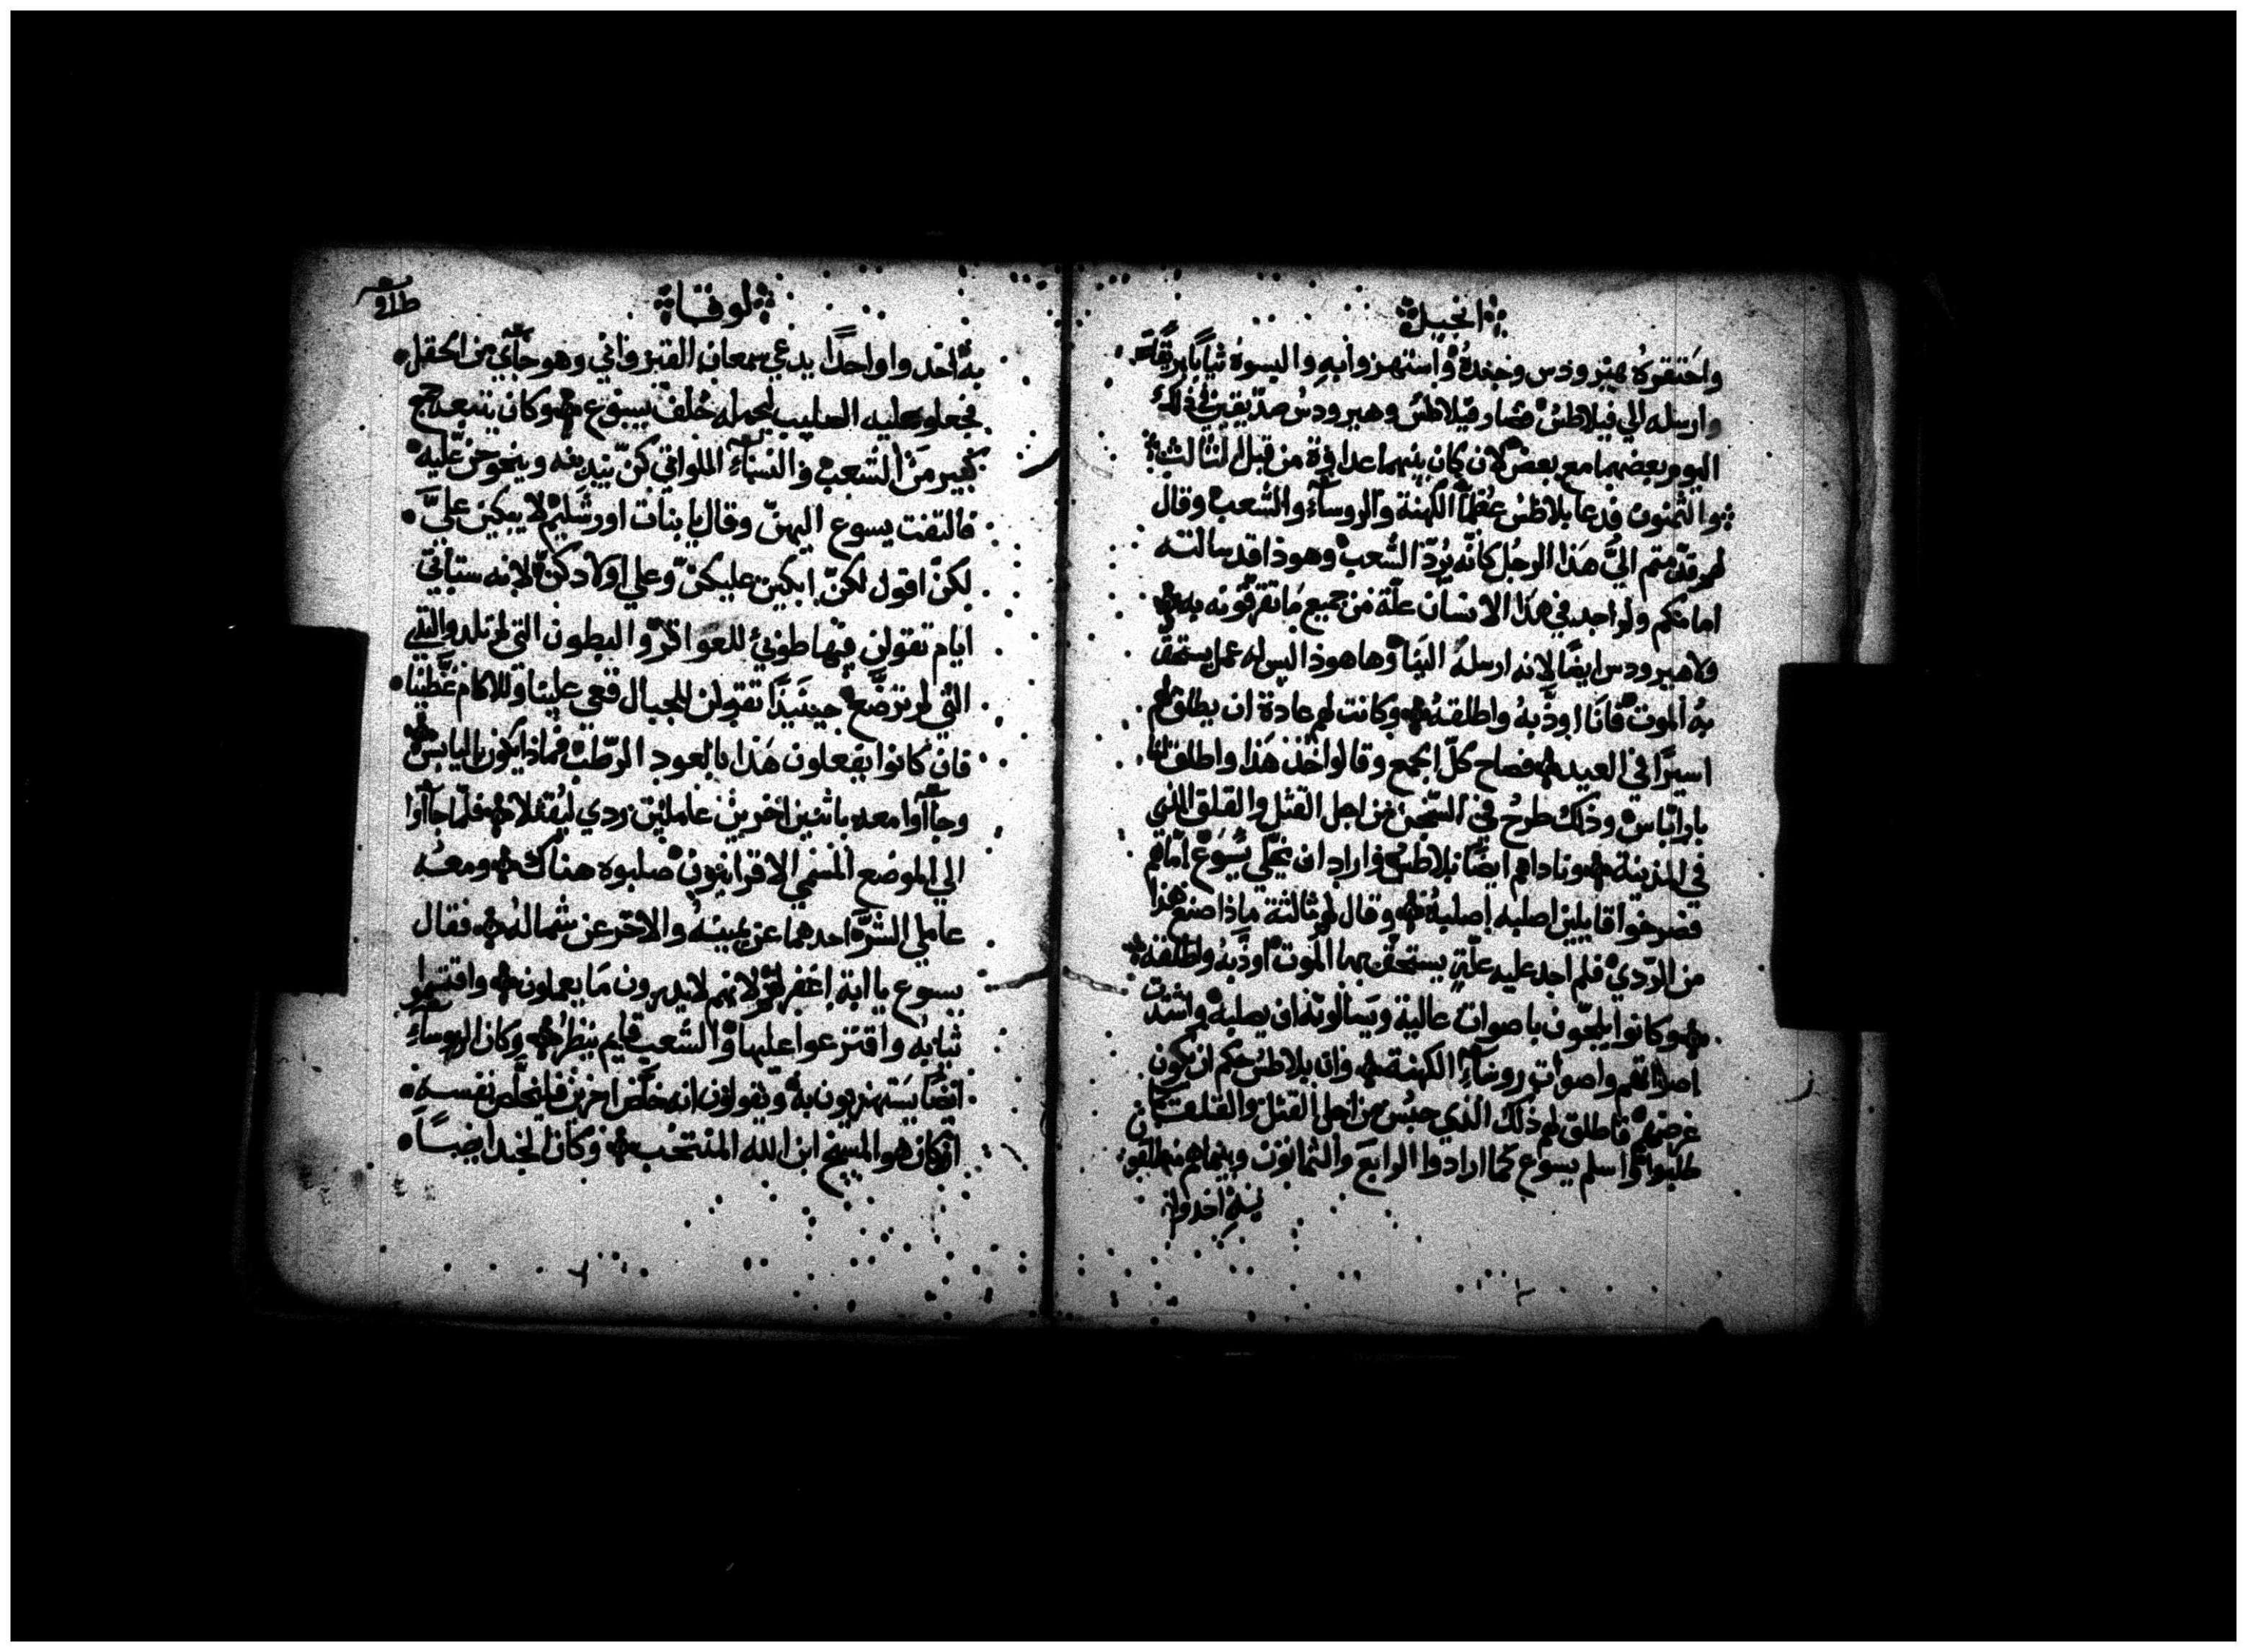 انجيل
واحتقروه هيرودس وجنده واستهزوا به والبسوه ثيابا براقة
وارسله الي فيلاطس فصار فيلاطس وهيرودس صديقين في ذلك
اليوم بعضهما مع بعض لان كان بينهما عداوة من قبل الثالث
والثمنون فدعا بلاطس عظماء الكهنة والروساء والشعب وقال
لهم قدمتم الي هذا الرجل كانه يرد الشعب وهوذا قد سالته
امامكم ولم اجد في هذا الانسان علة من جميع ما تقرفونه به
ولا هيرودس ايضا لانه ارسله الينا وها هوذا ليس له عمل يستحق
به الموت فانا اودبه واطلقه وكانت لهم عادة ان يطلق لهم
اسيرا في العيد فصاح كل الجمع وقالوا خذ هذا واطلق لنا
باراباس وذلك طرح في السجن من اجل القتل والقلق الذي
في المدينة وناداهم ايضا بلاطس واراد ان يخلي يسوع امامهم
فصرخوا قايلين اصلبه اصلبه وقال لهم ثالثة ماذا صنع هذا
من الردي فلم اجد عليه علة يستحق بها الموت اودبه واطلقه
وكانوا يلحون باصوات عالية ويسالونه ان يصلبه واشتدت
اصواتهم واصوات روساء الكهنة وان بلاطس حكم ان يكون
غرضهم فاطلق لهم ذلك الذي حبس من اجل القتل والقلق كان
طلبوا واسلم يسوع كما ارادوا الرابع والثمانون وبينما هم منطلقون
به اخدوا
لوقا
به اخدوا واحدا يدعي سمعان القيرواني وهو جاي من الحقل
فجعلوا عليه الصليب ليحمله خلف يسوع وكان يتبعه جمع
كبير من الشعب والنساء اللواتي كن يندبنه وينحوحن عليه
فالتفت يسوع اليهن وقال يا بنات اورشليم لا تبكين علي
لكن اقول لكن ابكين عليكن وعلي اولادكن لانه ستاتي
ايام تقولن فيها طوبي للعواقر والبطون التي لم تلد والثدي
التي لم ترضع حينيذا تقولن للجبال قعي علينا وللاكام غطينا
فان كانوا يفعلون هذا بالعود الرطب فماذا يكون باليابس
وجاآوا معه باثنين اخرين عاملين ردي ليقتلا فلما جاآوا
الي الموضع المسمي الاقرانيون صلبوه هناك ومعه
عاملي الشر احدهما عن يمينه والاخر عن شماله فقال
يسوع يا ابة اغفر لهم لانهم لا يدرون ما يعملون واقتسموا
ثيابه واقترعوا عليها والشعب قايم ينظر وكان الروساء
ايضا يستهزيون به ويقولون انه خلص اخرين فليخلص نفسه
ان كان هو المسيح ابن الله المنتخب وكان الجند ايضا